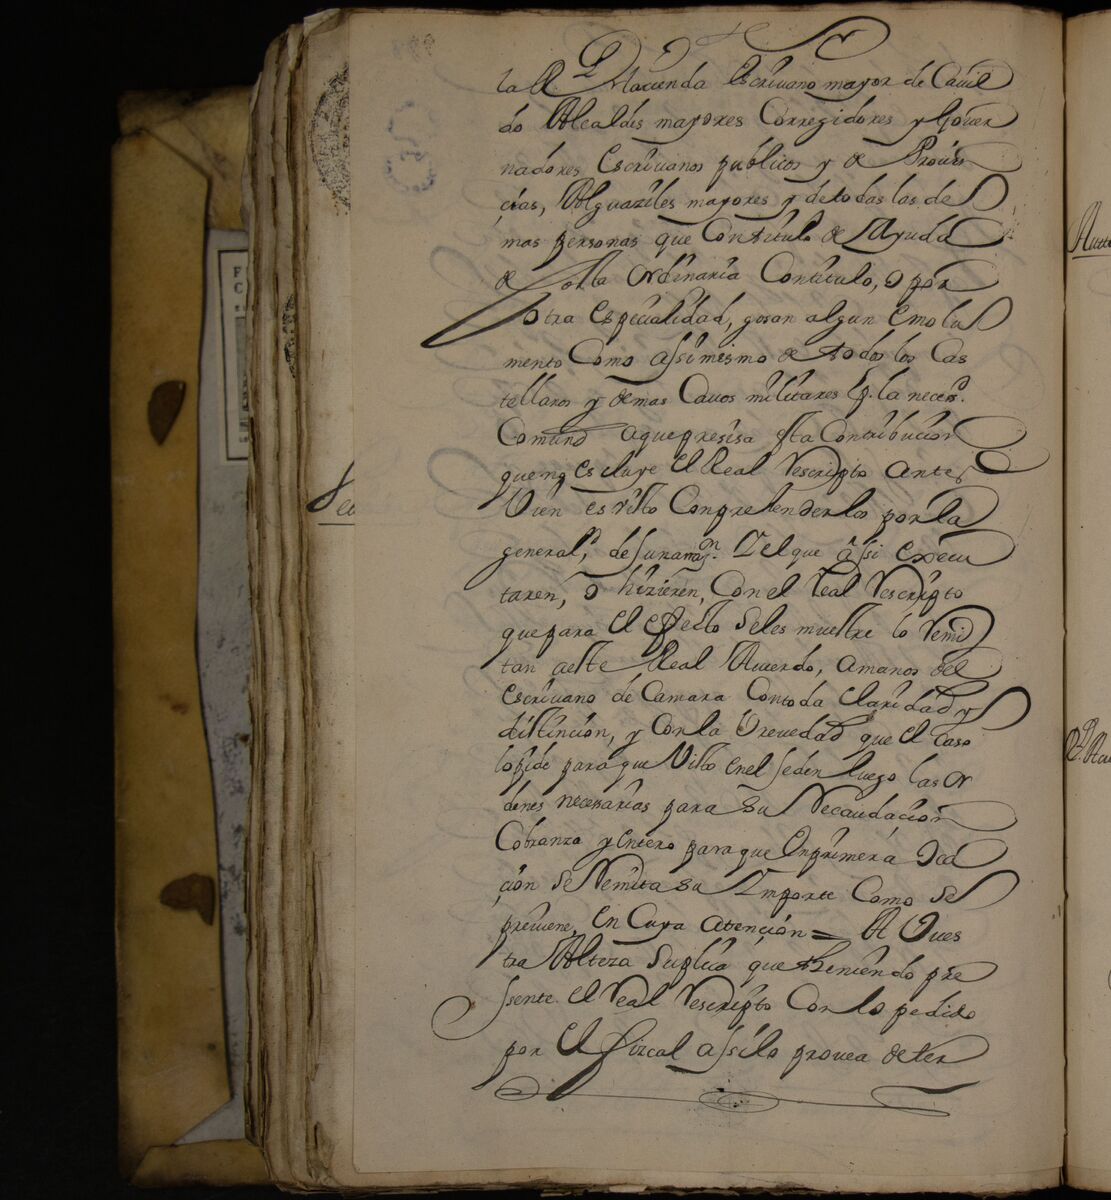 la R. Hacienda Escriuano mayor de Cauil
do Alcaldes mayores Corregidores y Gouer
nadores Escriuanos publicos y de Prouin
cias, Alguaziles mayores y de todas las de
mas personas que Con titulo de Ayuda
de Costa Ordinaria Contitulo, o por
otra especialidad, gosan algun emolu
mento Como assimesmo de todos los Cas
tellanos y demas Cauos militares p.r la neces.d
Comund aquepresisa esta Contribucion
que no escluye el Real Rescripto antes
Uien es visto Conprehenderlos por la
general.d de su ram.on Y el que assi execu
taren, o hizieren, Con el Real Rescripto
que para el effecto se les muestre lo Remi
tan aeste Real Acuerdo, amanos del
escriuano de Camara Contoda claridad y
distincion, y Con la breuedad que el Caso
lo pide para que Visto enel se den luego las or
denes necesarias para su Recaudacion
Cobranza y entero para que en primera oca
cion se Remita su Ymporte Como se
preuiene, en Cuya atencion = A Vues
tra Alteza Suplica que theniendo pre
ssente el Real Rescripto Con lo pedido
por el Fizcal assi lo prouea deter
Autto